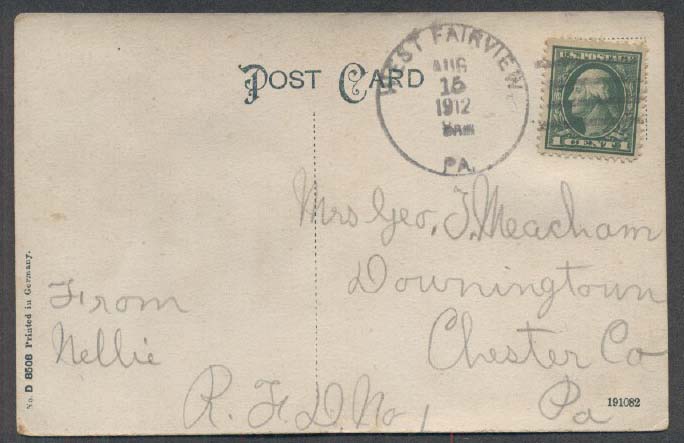 POST CARD
WEST FAIRVIEW
AUG
15
1912
PA.
U.S. POSTAGE
1 CENT 1
Mrs Geo. J. Meacham
Downingtown
Chester Co
Pa
From
Nellie
R. F. D. No 1
No. D 8508 Printed in Germany.
191082